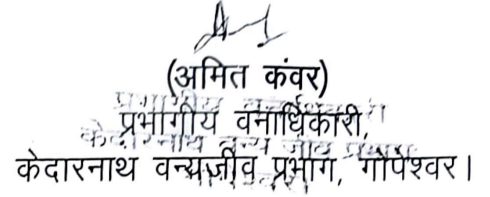 (अमित कंवर)
प्रभागीय वनाधिकारी,
केदारनाथ वन्यजीव प्रभाग, गोपेश्वर।